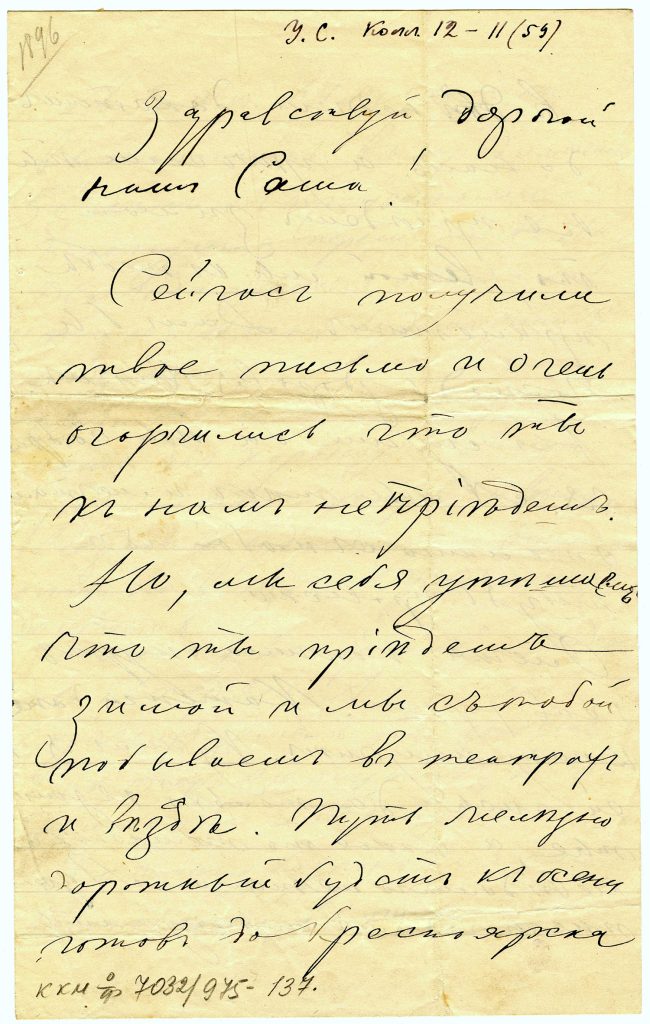 1896
У.С. Колл 12 - 11(59)
Здравствуй, дорогой
нашъ Саша!
Сейчасъ получили
твое письмо и очень
огорчились что ты
къ намъ непріѣдешъ.
Но, мы себя утѣшаемъ
что ты пріѣдешъ
зимой и мы съ тобой
побываемъ въ театрѣ
и вездѣ. Путь желѣзно
дорожный будетъ къ осени
готовъ до Красноярска
ККМ о/ф 7032/975-137.